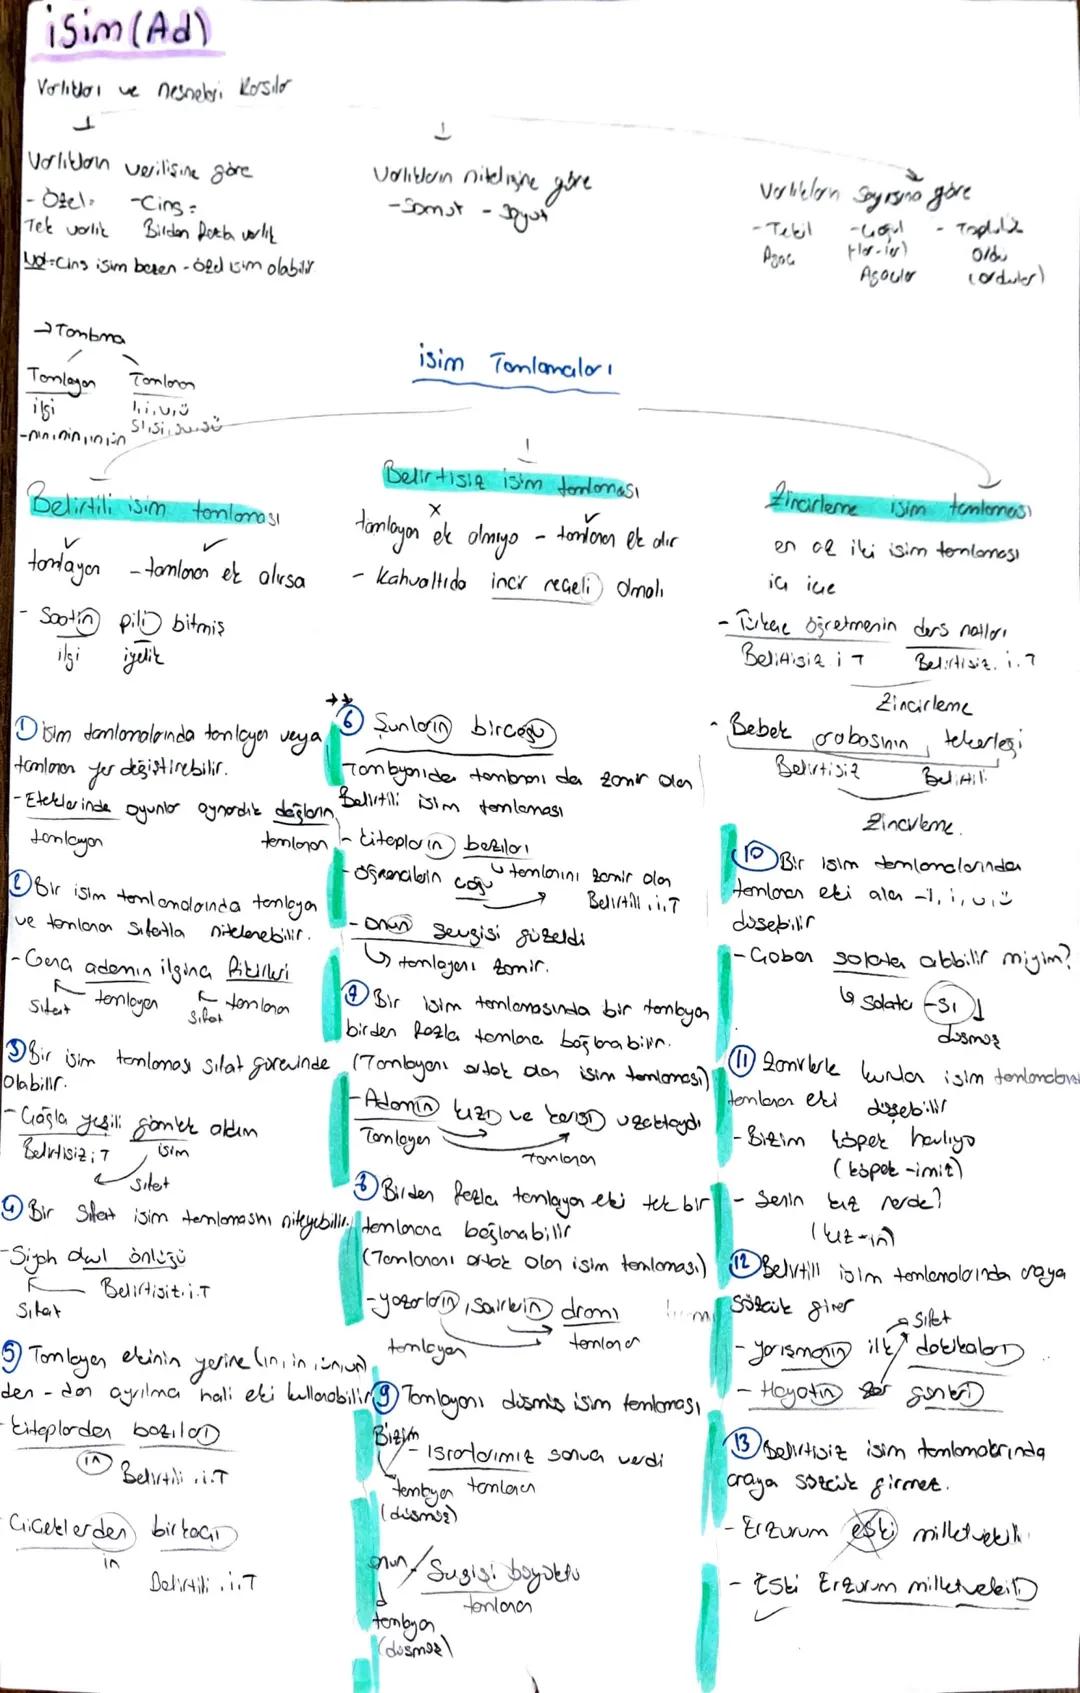 isim (Ad)
Varlıkları ve nesneleri karşılar
Varlıkların verilişine göre
- Özel: - Cins:
Tek varlık Birden fazla varlık
Not: Cins isim bazen - özel isim olabilir
Varlıkların niteliğine göre
- Somut - Soyut
Varlıkların sayısına göre
- Tekil - Çoğul - Topluluk
Ağaç (-lar-ler) Ordu
Ağaçlar (ordular)
→ Tamlama
Tamlayan Tamlanan
ilgi ı, i, u, ü
-nın, nin, ın, ün sı, si, su, sü
isim Tamlamaları
Belirtili isim tamlaması
tamlayan - tamlanan ek alırsa
- Saatin pili bitmiş
ilgi iyelik
Belirtisiz isim tamlaması
x
tamlayan ek almıyo - tamlanan ek alır
- Kahvaltıda incir reçeli olmalı
Zincirleme isim tamlaması
en az iki isim tamlaması
iç içe
- Türkçe öğretmenin ders notları
Belirtisiz i T Belirtisiz. i. T
Zincirleme
- Bebek arabasının tekerleği
Belirtisiz Belirtili
Zincirleme.
① isim tamlamalarında tamlayan veya
tamlanan yer değiştirebilir.
- Eteklerinde oyunlar oynardık dağların
tamlayan tamlanan
② Bir isim tamlamalarında tamlayan
ve tamlanan sıfatla nitelenebilir.
- Genç adamın ilginç fikirleri
Sıfat tamlayan Sıfat tamlanan
③ Bir isim tamlaması sıfat görevinde
olabilir.
- Çağla yeşili gömlek aldım
Belirtisiz i T isim
sıfat
④ Bir Sıfat isim tamlamasını niteleyebilir.
- Siyah okul önlüğü
Belirtisiz. i. T
Sıfat
⑤ Tamlayan ekinin yerine (ın, in, ün, un)
den - dan ayrılma hali eki kullanabilir
- Kitaplardan bazıları
ın Belirtili . i. T
Çiçeklerden birkaçı
in
Belirtili . i. T
⑥ Şunların birçoğu
Tamlayanıda tamlananı da zamir olan
Belirtili isim tamlaması
- Kitapların bazıları
- öğrencilerin çoğu tamlananı zamir olan
Belirtili . i. T
- onun sevgisi güzeldi
tamlayanı zamir.
⑦ Bir isim tamlamasında bir tamlayan
birden fazla tamlana bağlanabilir.
(Tamlayanı ortak olan isim tamlaması)
- Adamın kızı ve karısı uzaktaydı
Tamlayan Tamlanan
⑧ Birden fazla tamlayan eki tek bir
tamlanana bağlanabilir
(Tamlananı ortak olan isim tamlaması)
- yazarların, şairlerin dramı
tamlayan tamlanan
⑨ Tamlayanı düşmüş isim tamlaması
Bizim
- Israrlarımız sonuç verdi
tamlayan tamlanan
(düşmüş)
onun / Sevgisi büyüktü
tamlanan
tamlayan
(düşmüş)
⑩ Bir isim tamlamalarından
tamlanan eki alan -ı, i, u, ü
düşebilir
- Çoban salata alabilir miyim?
Salata -sı
düşmüş
⑪ Zamirlerle kurulan isim tamlamalarında
tamlanan eki düşebilir
- Bizim köpek havlıyo
(köpek -imiz)
- Senin kız nerde?
(kız -ın)
⑫ Belirtili isim tamlamalarında araya
sözcük girer
sıfat
- yarışmanın ilk dakikaları
- Hayatın zor günleri
⑬ Belirtisiz isim tamlamalarında
araya sözcük girmez.
- Erzurum eski milletvekili
- Eski Erzurum milletvekili